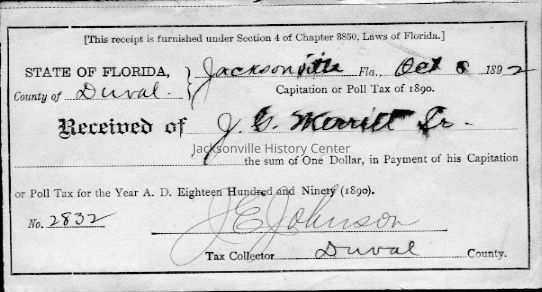 [This receipt is furnished under Section 4 of Chapter 3850, Laws of Florida.]
STATE OF FLORIDA, Jacksonville Fla., Oct 8 1892
County of Duval. Capitation or Poll Tax of 1890.
Received of J. G. Merritt Sr.
Jacksonville History Center
the sum of One Dollar, in Payment of his Capitation
or Poll Tax for the Year A. D. Eighteen Hundred and Ninety (1890).
No. 2832 J E Johnson
Tax Collector Duval County.